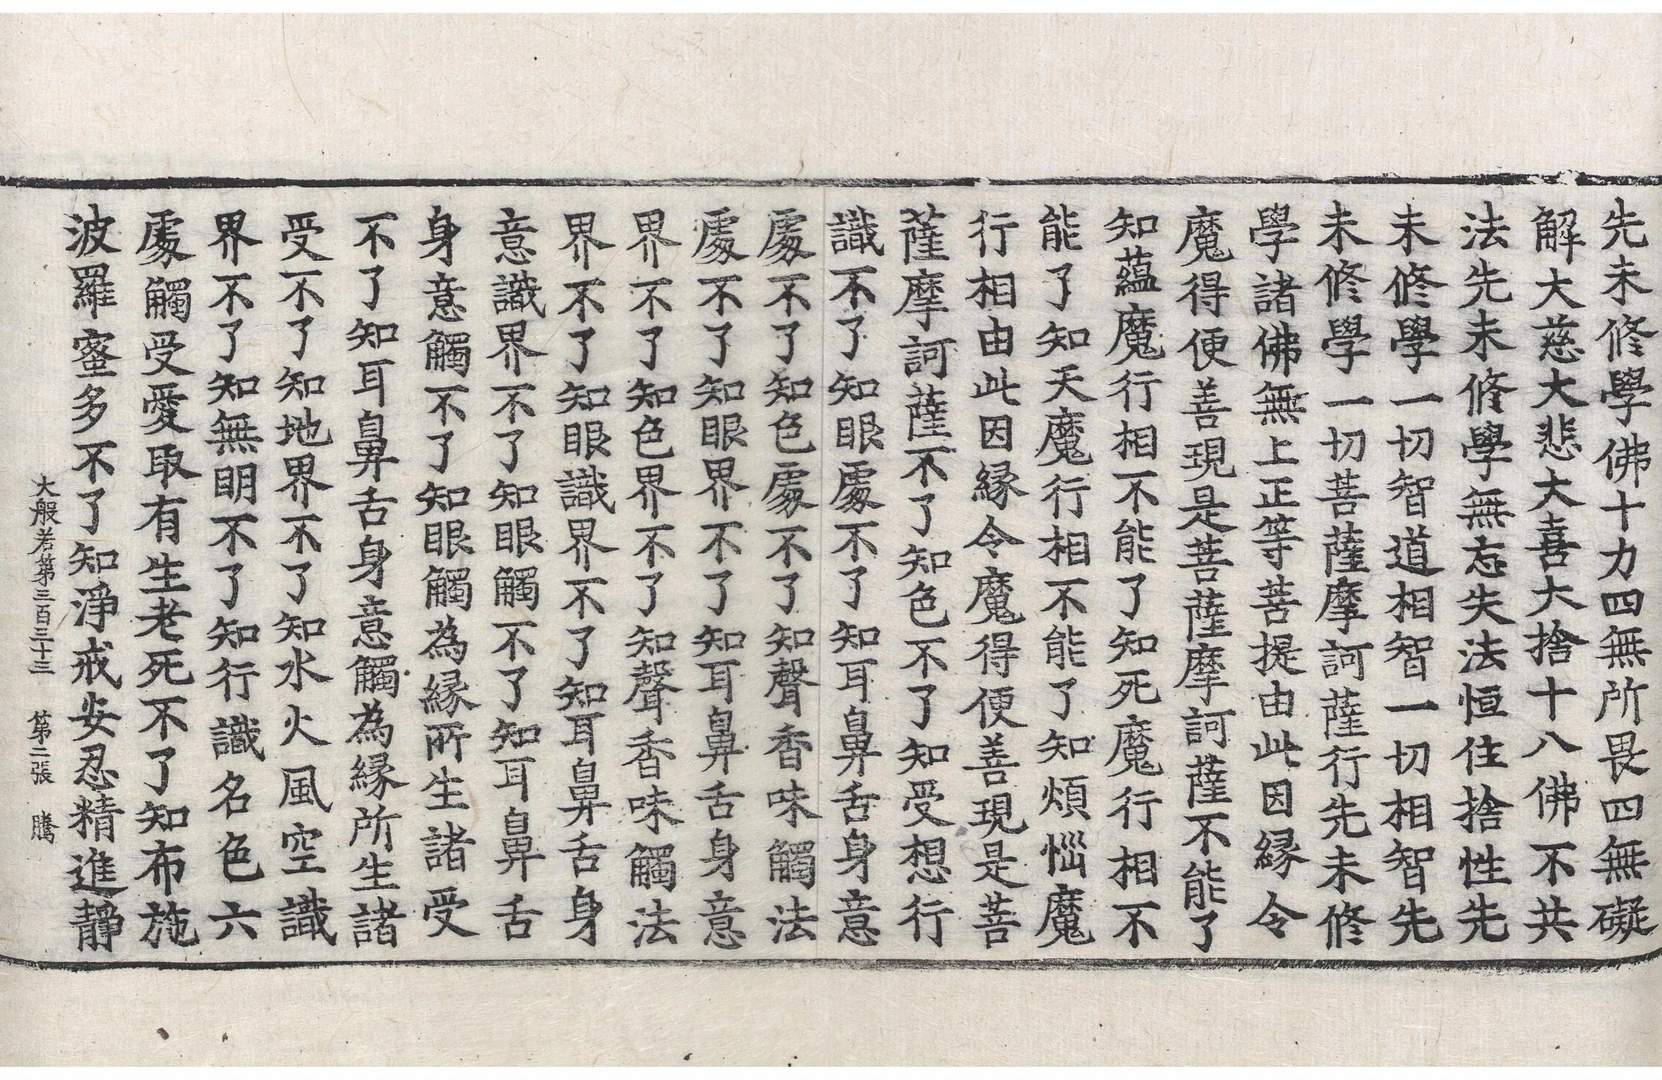 先未修學佛十力四無所畏四無礙
解大慈大悲大喜大捨十八佛不共
法先未修學無忘失法恒住捨性先
未修學一切智道相智一切相智先
未修學一切菩薩摩訶薩行先未修
學諸佛無上正等菩提由此因緣令
魔得便善現是菩薩摩訶薩不能了
知蘊魔行相不能了知死魔行相不
能了知天魔行相不能了知煩惱魔
行相由此因緣令魔得便善現是菩
薩摩訶薩不了知色不了知受想行
識不了知眼處不了知耳鼻舌身意
處不了知色處不了知聲香味觸法
處不了知眼界不了知耳鼻舌身意
界不了知色界不了知聲香味觸法
界不了知眼識界不了知耳鼻舌身
意識界不了知眼觸不了知耳鼻舌
身意觸不了知眼觸為緣所生諸受
不了知耳鼻舌身意觸為緣所生諸
受不了知地界不了知水火風空識
界不了知無明不了知行識名色六
處觸受愛取有生老死不了知布施
波羅蜜多不了知淨戒安忍精進靜
大般若第三百三十三 第二張 騰